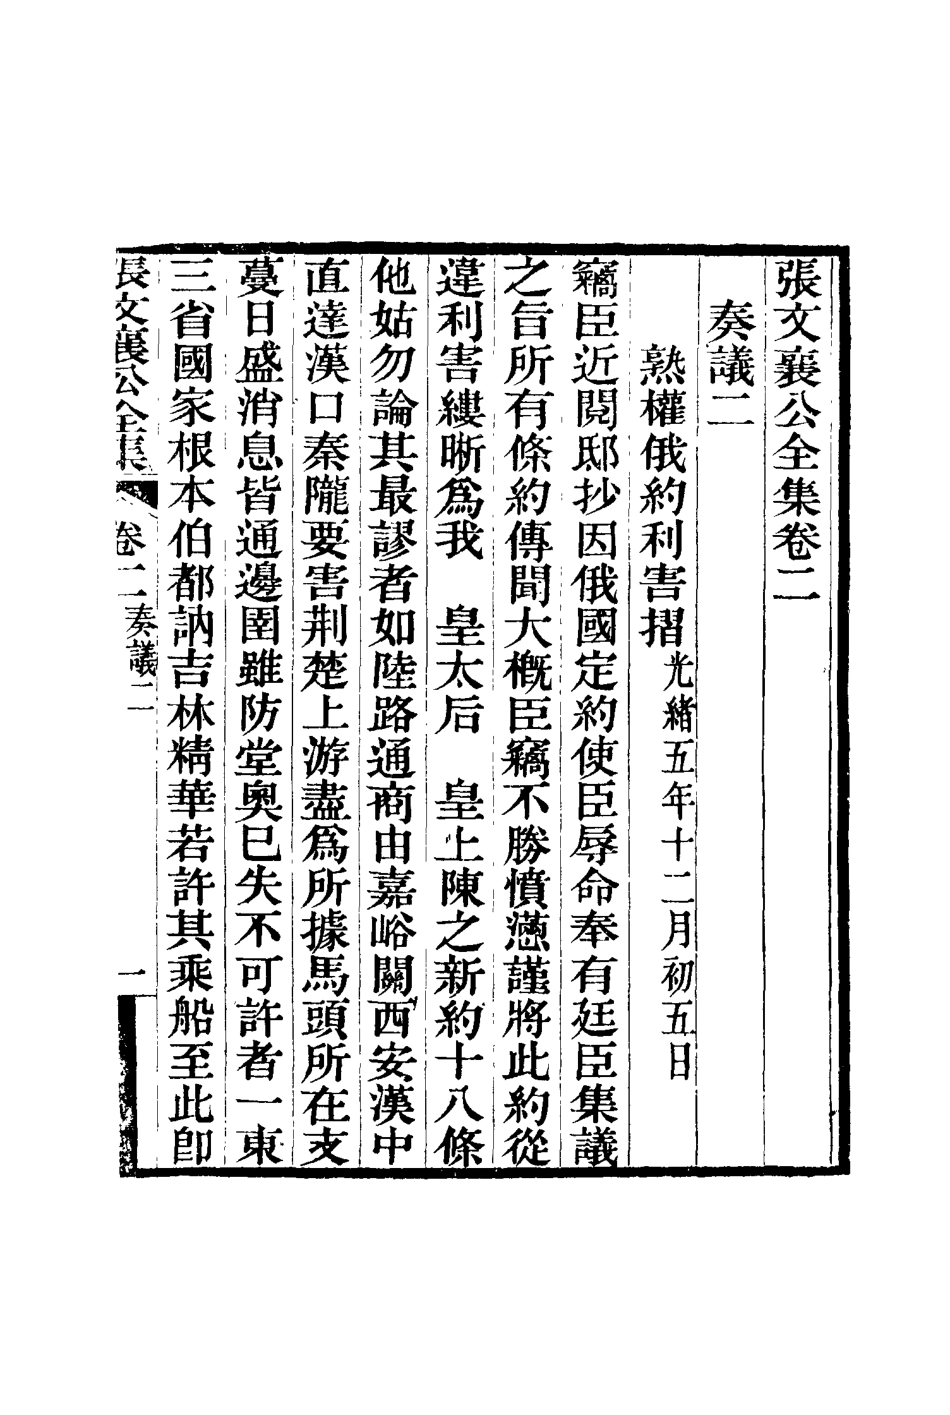 張文襄公全集卷二
奏議二
熟權俄約利害摺光緒五年十二月初五日
竊臣近閱邸抄因俄國定約使臣辱命奉有廷臣集議
之旨所有條約傳聞大概臣竊不勝憤懣謹將此約從
違利害縷晰爲我　皇太后　皇上陳之新約十八條
他姑勿論其最謬者如陸路通商由嘉峪關西安漢中
直達漢口秦隴要害荆楚上游盡爲所據馬頭所在支
蔓日盛消息皆通邊圉雖防堂奥已失不可許者一東
三省國家根本伯都訥吉林精華若許其乘船至此即
張文襄公全集　卷二　奏議二　一